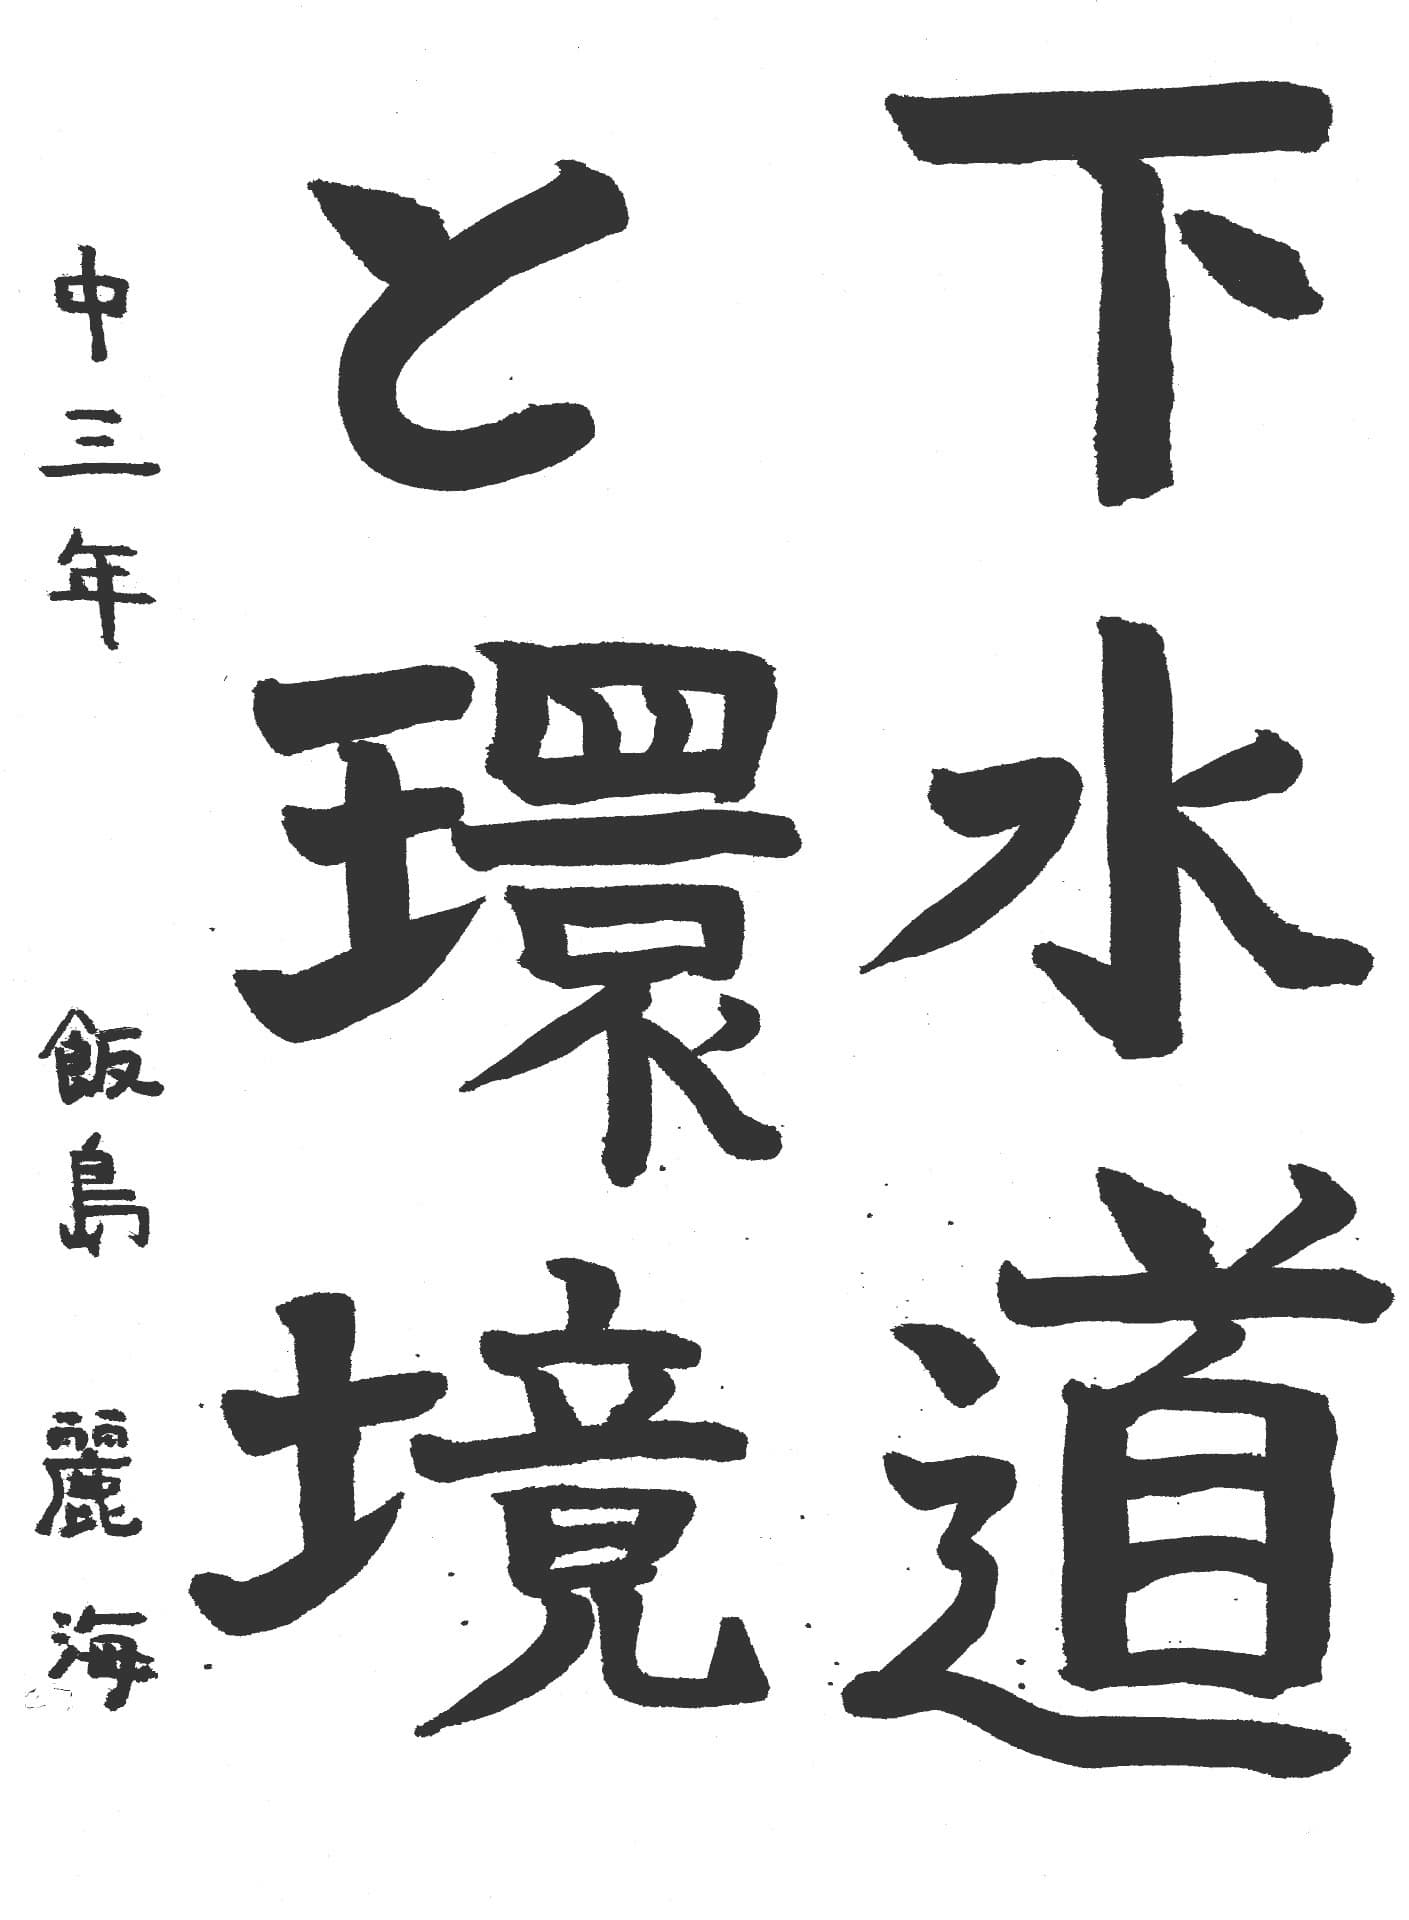 下水道
と環境
中三年 飯島 麗海